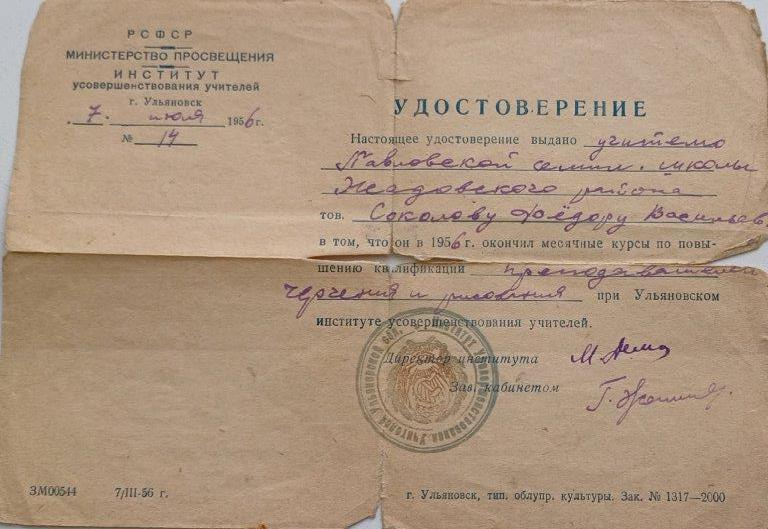 РСФСР
МИНИСТЕРСТВО ПРОСВЕЩЕНИЯ
ИНСТИТУТ
усовершенствования учителей
г. Ульяновск
7. июля 1956 г.
№ 14
УДОСТОВЕРЕНИЕ
Настоящее удостоверение выдано учителю
Павловской семил. школы
Жадовского района
тов. Соколову Фёдору Васильев.
в том, что он в 1956 г. окончил месячные курсы по повы-
шению квалификации преподавателей
черчения и рисования при Ульяновском
институте усовершенствования учителей.
Директор института
Зав. кабинетом
ЗМ00544 7/III-56 г.
г. Ульяновск, тип. облупр. культуры. Зак. № 1317—2000